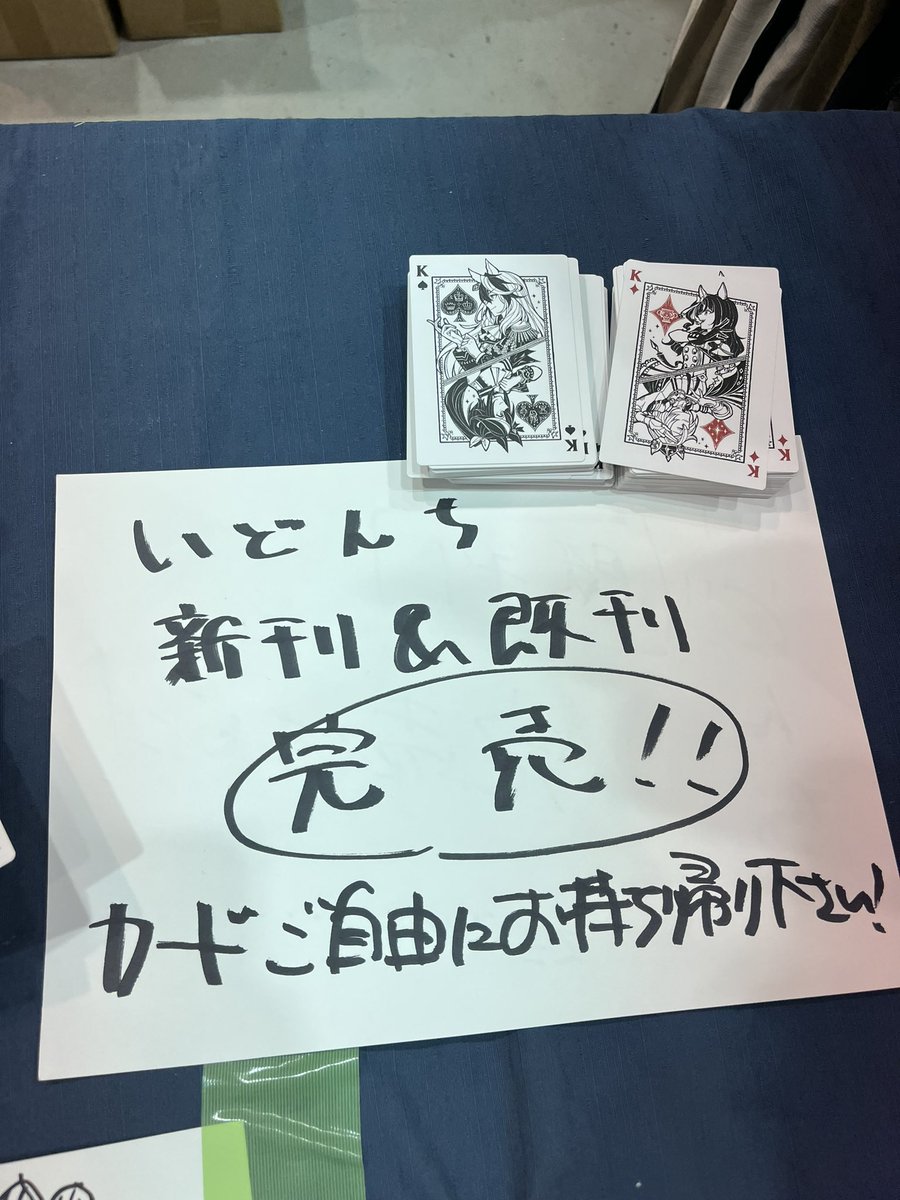 K
K
K
K
K
いどんち
新刊&既刊
完売!!
カードご自由にお持ち帰り下さい!